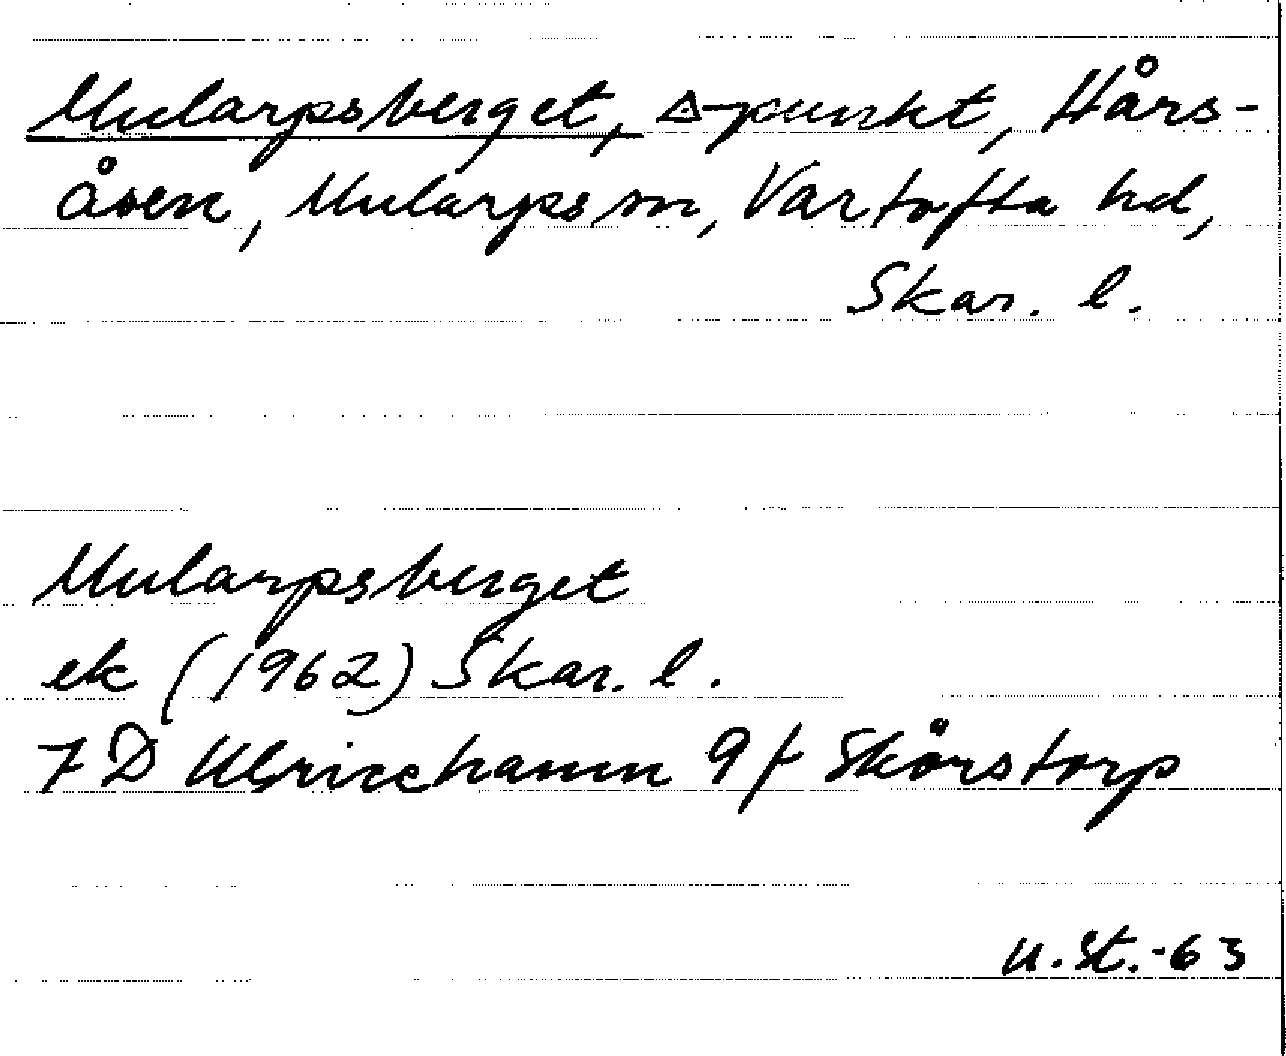 Mularpsberget, Δ-punkt, Hårs-
åsen, Mularps sn, Vartofta hd,
Skar. l.
Mularpsberget
ek (1962) Skar. l.
7 D Ulricehamn 9 f Skörstorp
u.St.-63